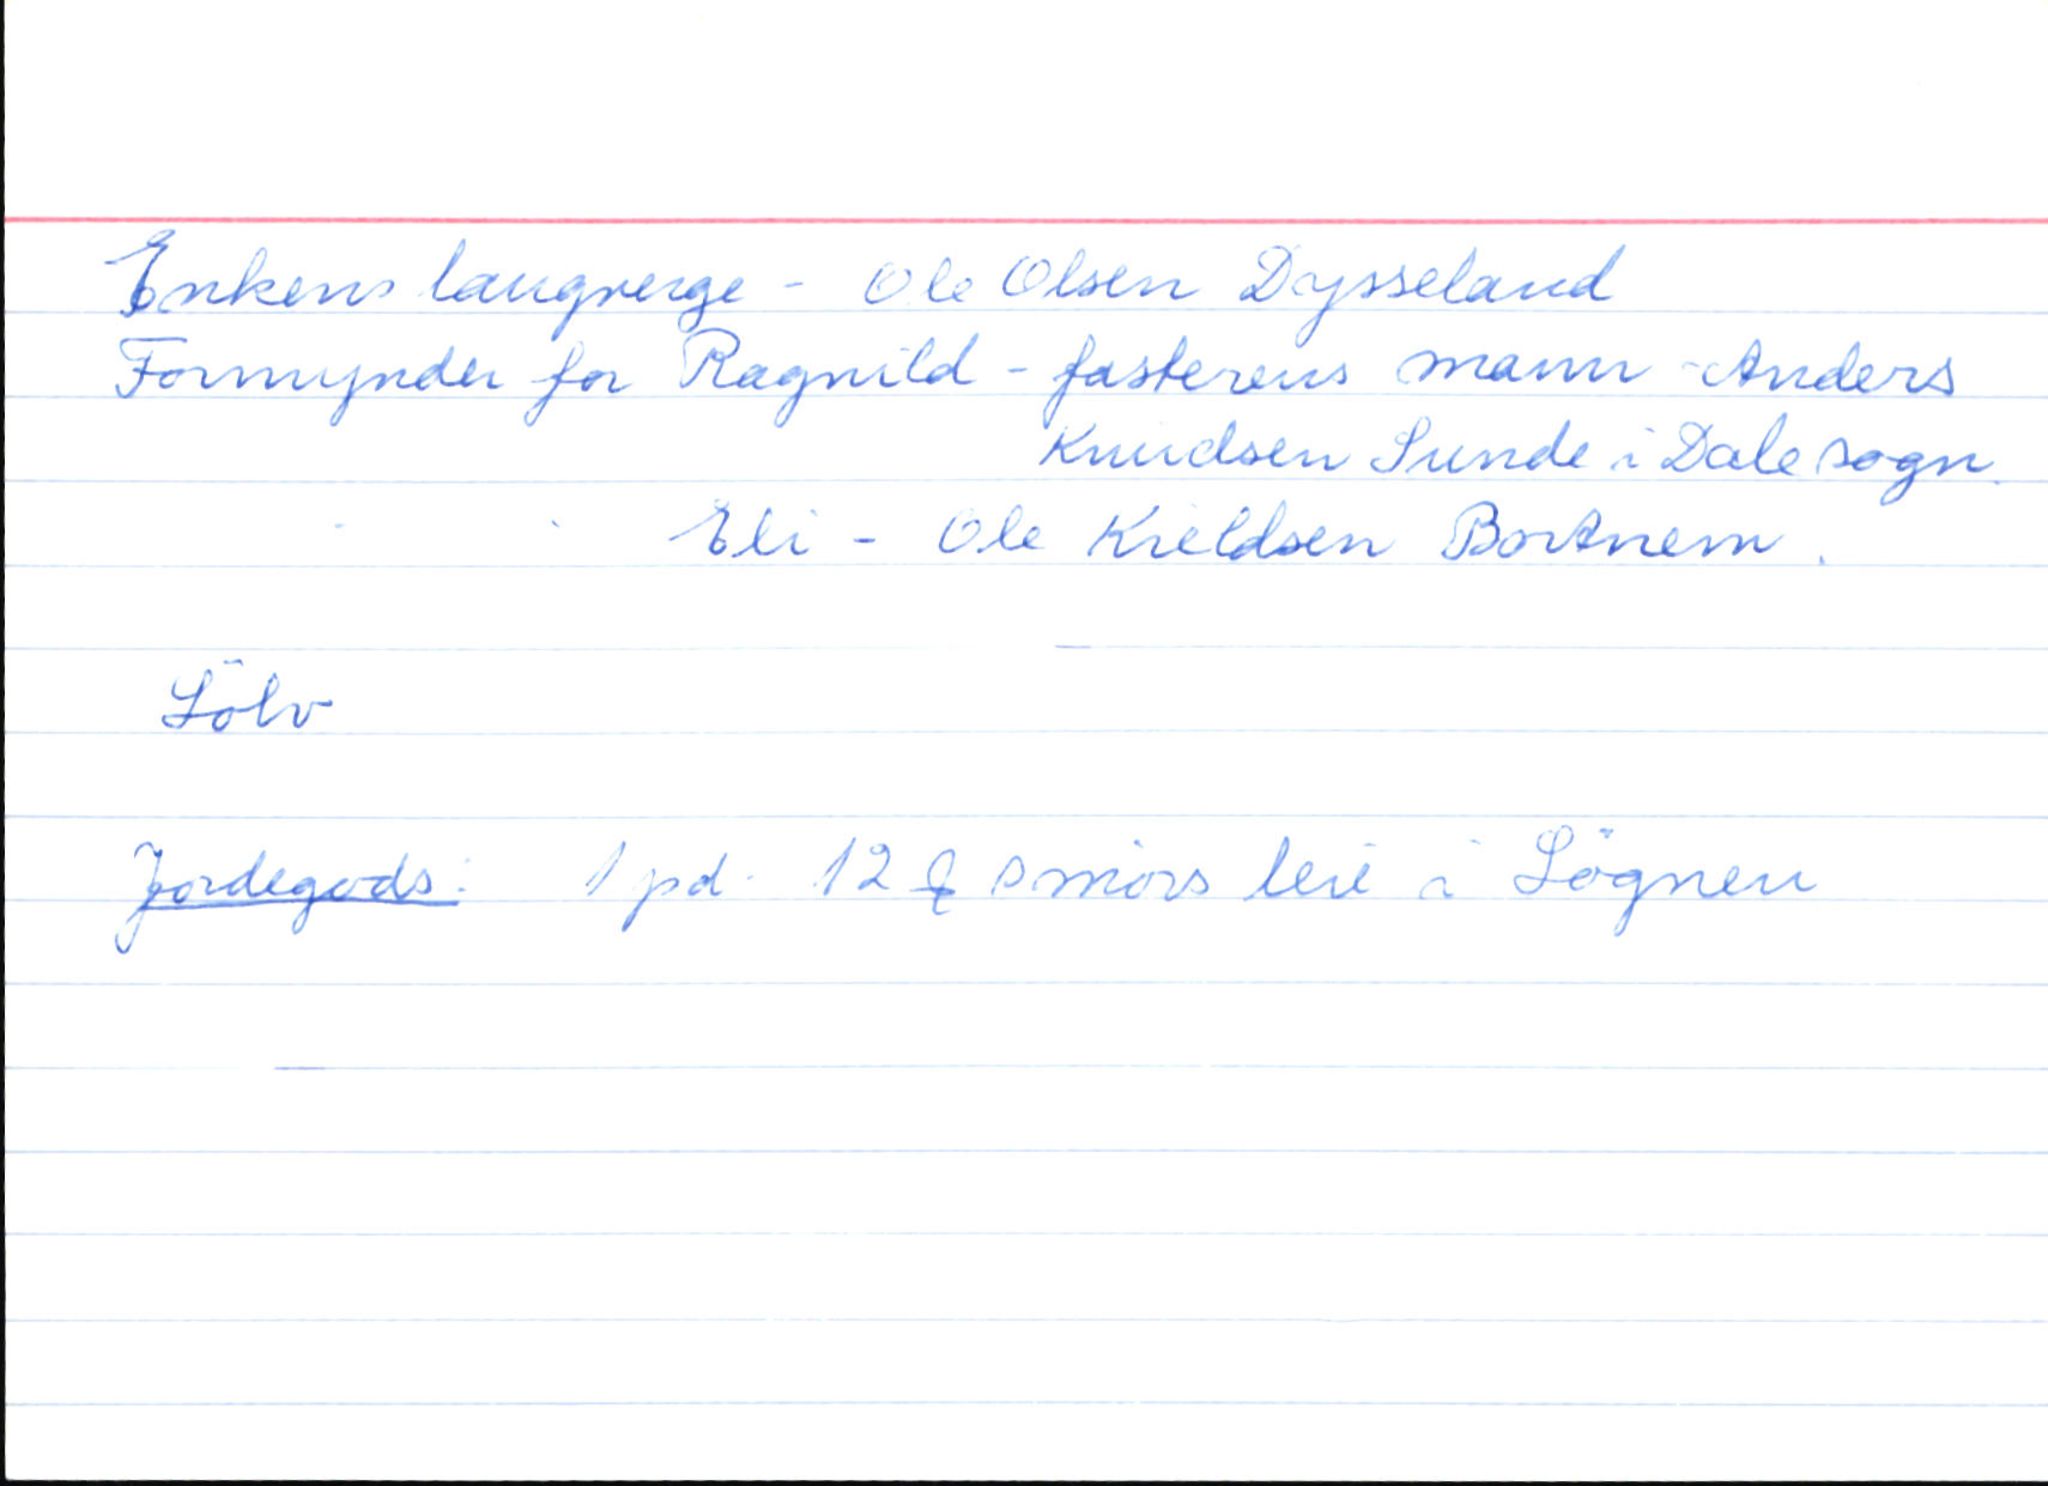 Enkens laugverge - Ole Olsen Dysseland
Formynder for Ragnild - fasterens mann - Anders
Knudsen Sunde i Dale sogn.
" " Eli - Ole Kieldsen Bortnem.
Sölv
Jordegods: 1 pd. 12 ℔ smörs leie i Sögnen